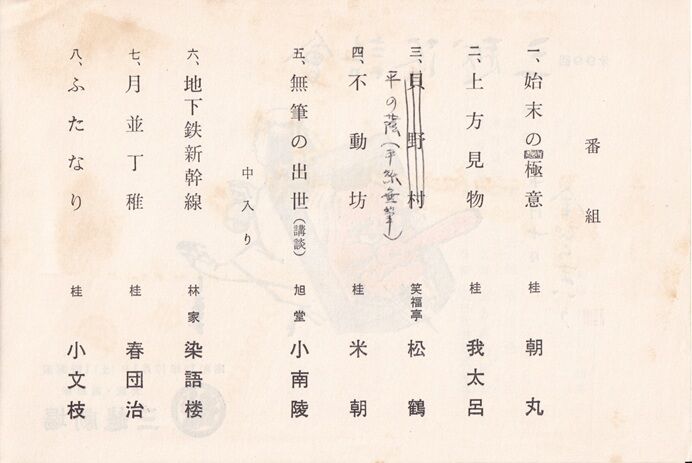 番組
一、始末の極意 桂 朝丸
二、上方見物 桂 我太呂
三、貝野村 笑福亭 松鶴
平の蔭(平林無筆)
四、不動坊 桂 米朝
五、無筆の出世(講談) 旭堂 小南陵
中入り
六、地下鉄新幹線 林家 染語楼
七、月並丁稚 桂 春団治
八、ふたなり 桂 小文枝